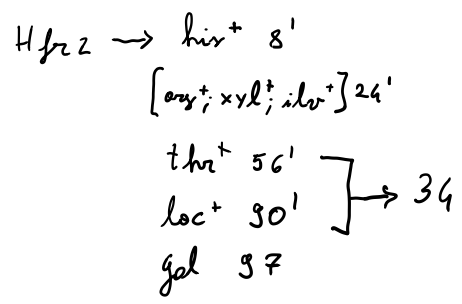 Hfr2 → his+ 8'
[arg+; xyl+; ilv+] 24'
thr+ 56'
loc+ 90' → 34
gal 97